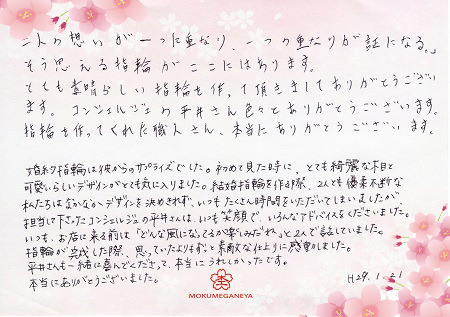 二人の想いが一つに重なり、一つの重なりが証になる。
そう思える指輪がここにはあります。
とても素晴らしい指輪を作って頂きましてありがとうござい
ます。コンシェルジュの平井さん色々とありがとうございます。
指輪を作ってくれた職人さん、本当にありがとうございます。
婚約指輪は彼からのサプライズでした。初めて見た時に、とても綺麗な木目と
可愛いらしいデザインがとても気に入りました。結婚指輪を作る際、2人とも優柔不断な
私たちはなかなかデザインを決めきれず、いつもたくさん時間をいただいてしまいましたが、
担当して下さったコンシェルジュの平井さんは、いつも笑顔で、いろんなアドバイスをくださいました。
いつも、お店に来る前は「どんな風になってるか楽しみだね。」と2人で話していました。
指輪が完成した際、思っていたよりもずっと素敵な仕上りに感動しました。
平井さんも一緒に喜んでくださって、本当にうれしかったです。
本当にありがとうございました。
H29.1.21
MOKUMEGANEYA